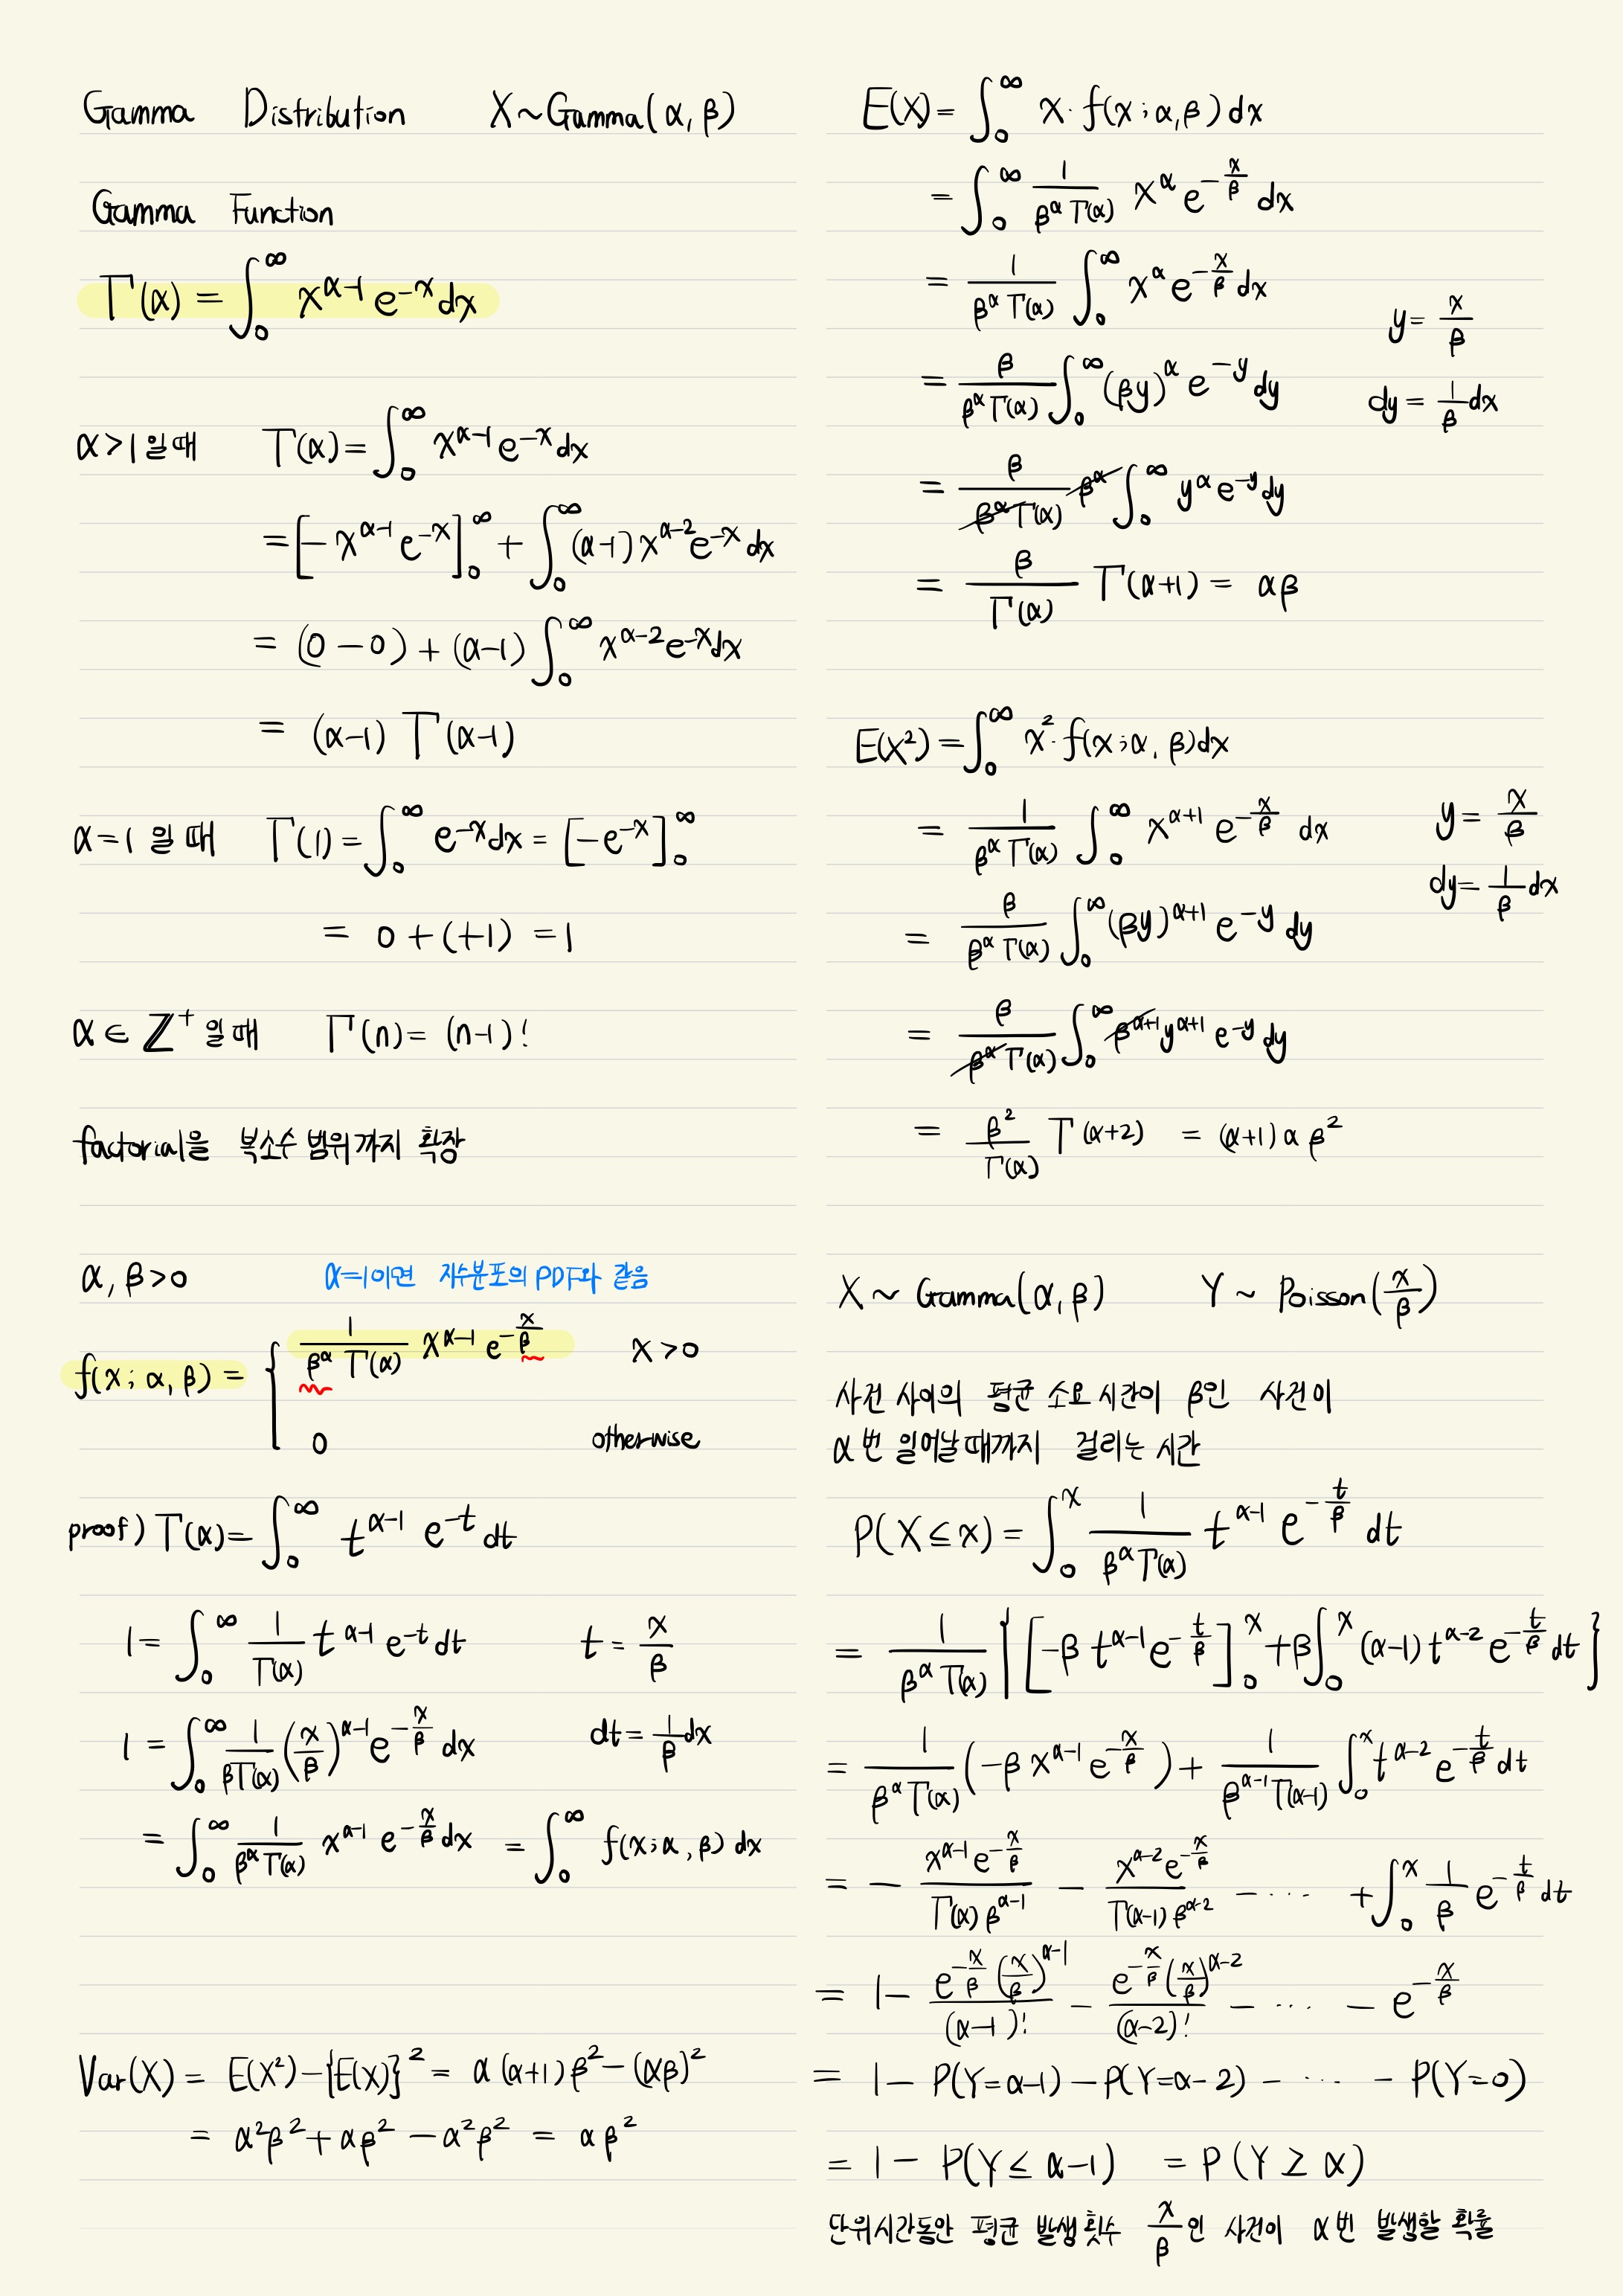 Gamma Distribution X ~ Gamma(α, β)
Gamma Function
Γ(α) = ∫₀^∞ x^(α-1) e^(-x) dx
α > 1 일 때 Γ(α) = ∫₀^∞ x^(α-1) e^(-x) dx
= [-x^(α-1) e^(-x)]₀^∞ + ∫₀^∞ (α-1) x^(α-2) e^(-x) dx
= (0 - 0) + (α-1) ∫₀^∞ x^(α-2) e^(-x) dx
= (α-1) Γ(α-1)
α = 1 일 때 Γ(1) = ∫₀^∞ e^(-x) dx = [-e^(-x)]₀^∞
= 0 + (+1) = 1
α ∈ ℤ⁺ 일 때 Γ(n) = (n-1)!
factorial을 복소수 범위까지 확장
α, β > 0 α=1이면 지수분포의 PDF와 같음
f(x; α, β) = { 1/(β^α Γ(α)) x^(α-1) e^(-x/β) x > 0
0 otherwise
proof) Γ(α) = ∫₀^∞ t^(α-1) e^(-t) dt
1 = ∫₀^∞ 1/Γ(α) t^(α-1) e^(-t) dt t = x/β
1 = ∫₀^∞ 1/(βΓ(α)) (x/β)^(α-1) e^(-x/β) dx dt = 1/β dx
= ∫₀^∞ 1/(β^α Γ(α)) x^(α-1) e^(-x/β) dx = ∫₀^∞ f(x; α, β) dx
Var(X) = E(X²) - {E(X)}² = α(α+1)β² - (αβ)²
= α²β² + αβ² - α²β² = αβ²
E(X) = ∫₀^∞ x · f(x; α, β) dx
= ∫₀^∞ 1/(β^α Γ(α)) x^α e^(-x/β) dx
= 1/(β^α Γ(α)) ∫₀^∞ x^α e^(-x/β) dx y = x/β
= β/(β^α Γ(α)) ∫₀^∞ (βy)^α e^(-y) dy dy = 1/β dx
= β/(β^α Γ(α)) β^α ∫₀^∞ y^α e^(-y) dy
= β/Γ(α) Γ(α+1) = αβ
E(X²) = ∫₀^∞ x² · f(x; α, β) dx
= 1/(β^α Γ(α)) ∫₀^∞ x^(α+1) e^(-x/β) dx y = x/β
dy = 1/β dx
= β/(β^α Γ(α)) ∫₀^∞ (βy)^(α+1) e^(-y) dy
= β/(β^α Γ(α)) ∫₀^∞ β^(α+1) y^(α+1) e^(-y) dy
= β²/Γ(α) Γ(α+2) = (α+1)αβ²
X ~ Gamma(α, β) Y ~ Poisson(x/β)
사건 사이의 평균 소요 시간이 β인 사건이
α번 일어날 때까지 걸리는 시간
P(X ≤ x) = ∫₀^x 1/(β^α Γ(α)) t^(α-1) e^(-t/β) dt
= 1/(β^α Γ(α)) { [-β t^(α-1) e^(-t/β)]₀^x + β∫₀^x (α-1) t^(α-2) e^(-t/β) dt }
= 1/(β^α Γ(α)) (-β x^(α-1) e^(-x/β)) + 1/(β^(α-1) Γ(α-1)) ∫₀^x t^(α-2) e^(-t/β) dt
= - x^(α-1) e^(-x/β)/(Γ(α) β^(α-1)) - x^(α-2) e^(-x/β)/(Γ(α-1) β^(α-2)) - ··· + ∫₀^x 1/β e^(-t/β) dt
= 1 - e^(-x/β) (x/β)^(α-1)/(α-1)! - e^(-x/β) (x/β)^(α-2)/(α-2)! - ··· - e^(-x/β)
= 1 - P(Y=α-1) - P(Y=α-2) - ··· - P(Y=0)
= 1 - P(Y ≤ α-1) = P(Y ≥ α)
단위시간동안 평균 발생 횟수 x/β인 사건이 α번 발생할 확률